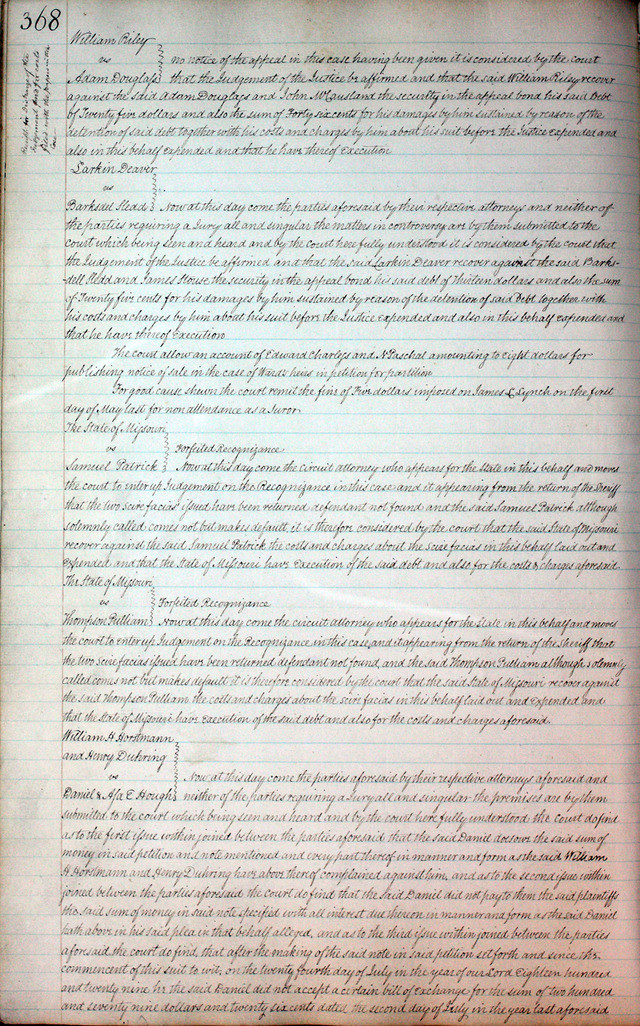 368
William Riley
vs
no notice of the appeal in this case having been given it is considered by the court
Adam Douglass that the Judgement of the Justice be affirmed and that the said William Riley recover
against the said Adam Douglass and John McCausland the security in the appeal bond his said Debt
of Twenty five dollars and also the sum of Forty six cents for his damages by him sustained by reason of the
detention of said debt together with his costs and charges by him about his suit before the Justice expended and
also in this behalf expended and that he have thereof Execution
Larkin Deaver
vs
Barksdel Sledd Now at this day come the parties aforesaid by their respective attorneys and neither of
the parties requiring a Jury all and singular the matters in controversy are by them submitted to the
court which being seen and heard and by the Court here fully understood it is considered by the court that
the Judgement of the Justice be affirmed and that the said Larkin Deaver recover against the said Barks-
dell Sledd and James House the security in the appeal bond his said debt of Thirteen dollars and also the sum
of Twenty five cents for his damages by him sustained by reason of the detention of said Debt together with
his costs and charges by him about his suit before the Justice Expended and also in this behalf expended and
that he have thereof Execution
The court allow an account of Edward Charless and N Paschal amounting to Eight dollars for
publishing notice of sale in the case of Wards heirs in petition for partition
For good cause shewn the court remit the fine of Five dollars imposed on James L Lynch on the first
day of May last for non attendance as a Juror
The State of Missouri
vs Forfeited Recognizance
Samuel Patrick Now at this day come the circuit attorney who appears for the State in this behalf and moves
the court to enter up Judgement on the Recognizance in this case and it appearing from the return of the Sheriff
that the two Scire facias issued have been returned defendant not found and the said Samuel Patrick although
solemnly called comes not but makes default, it is therefore considered by the court that the said State of Missouri
recover against the said Samuel Patrick the costs and charges about the Scire facias in this behalf laid out and
Expended and that the State of Missouri have Execution of the said debt and also for the costs & charges aforesaid
The State of Missouri
vs Forfeited Recognizance
Thompson Pulliam Now at this day come the circuit attorney who appears for the State in this behalf and moves
the court to enter up Judgement on the Recognizance in this case and it appearing from the return of the Sheriff that
the two Scire facias issued have been returned defendant not found, and the said Thompson Pulliam although solemnly
called comes not but makes default it is therefore considered by the court that the said State of Missouri recover against
the said Thompson Pulliam the costs and charges about the scire facias in this behalf laid out and Expended and
that the State of Missouri have Execution of the said debt and also for the costs and charges aforesaid
William H Horstmann
and Henry Duhring
vs Now at this day come the parties aforesaid by their respective attorneys aforesaid and
Daniel & Asa E Hough neither of the parties requiring a Jury all and singular the premises are by them
submitted to the court which being seen and heard and by the court here fully understood the court do find
as to the first issue within joined between the parties aforesaid that the said Daniel does owe the said sum of
money in said petition and note mentioned and every part thereof in manner and form as the said William
H Horstmann and Henry Duhring have above thereof complained against him, and as to the second issue within
joined between the parties aforesaid the court do find that the said Daniel did not pay to them the said plaintiffs
the said sum of money in said note specified with all interest due thereon in manner and form as the said Daniel
hath above in his said plea in that behalf alleged, and as to the third issue within joined between the parties
aforesaid the court do find, that after the making of the said note in said petition set forth and since the
commencement of this suit to wit, on the twenty fourth day of July in the year of our Lord Eighteen hundred
and twenty nine he the said Daniel did not accept a certain bill of Exchange for the sum of two hundred
and seventy nine dollars and twenty six cents dated the second day of July in the year last aforesaid